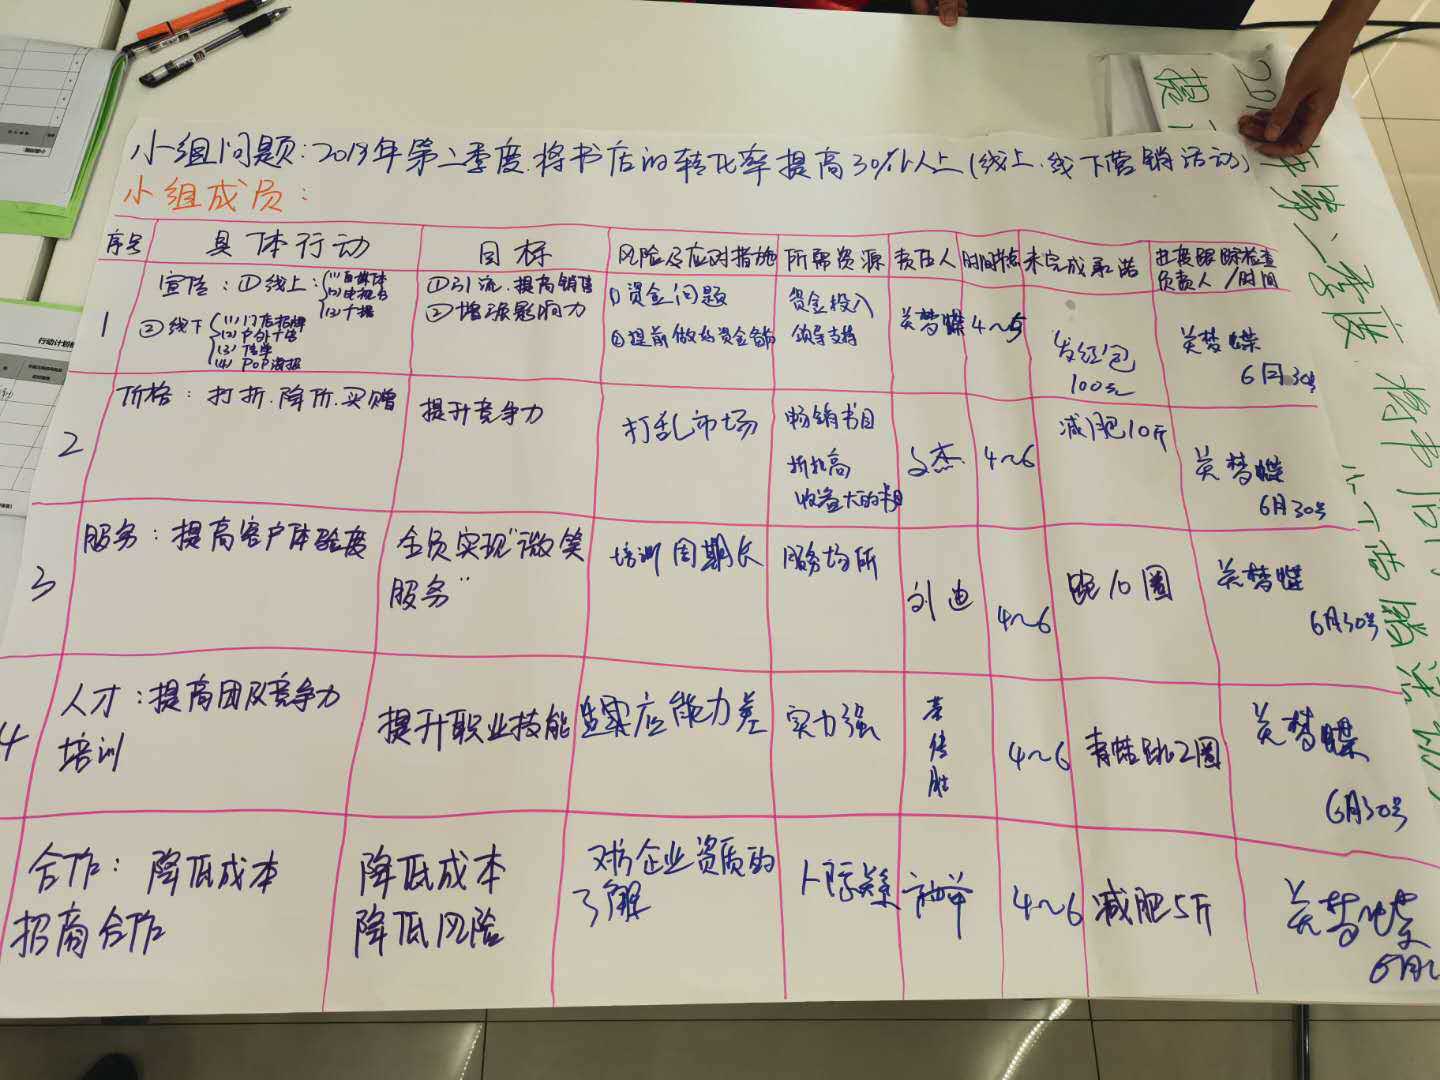 小组问题：2019年第二季度.将书店的转化率提高30%以上(线上.线下营销活动)
小组成员：
序号 具体行动 目标 风险及应对措施 所需资源 责任人 时间 未完成承诺 进度跟踪检查
负责人/时间
1
宣传：①线上：
(1)自媒体
(3)干报
②线下
(1)门店招牌
(2)户外广告
(4) POP海报
①引流.提高销售
②增强影响力
①资金问题
②提前做好资金
资金投入
领导支持
关梦蝶
4~5
发红包
100元
关梦蝶
6月30号
2
价格：打折.降价.买赠
提升竞争力
打乱市场
畅销书目
折扣高
收益大的
文杰
4~6
减肥10斤
关梦蝶
6月30号
3
服务：提高客户体验度
全员实现“微笑
服务”
培训周期长
服务场所
刘迪
4~6
跑10圈
关梦蝶
6月30号
4
人才：提高团队竞争力
培训
提升职业技能
适应能力差
实力强
传胜
4~6
青蛙跳2圈
关梦蝶
6月30号
合作：降低成本
招商合作
降低成本
降低风险
对方企业资质的
了解
人际关系
4~6
减肥5斤
关梦蝶
6月
第二季度